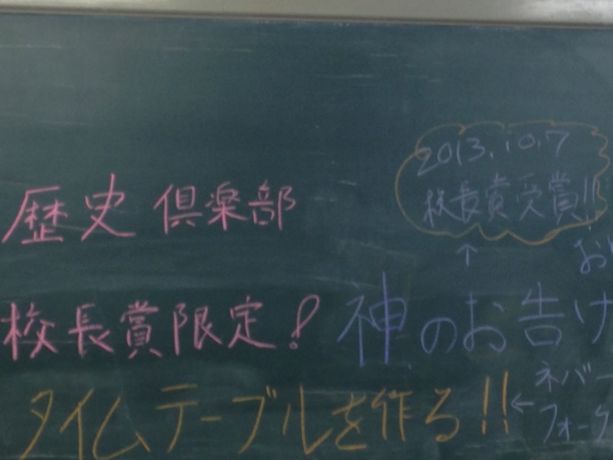 2013.10.7
校長賞受賞!!
歴史倶楽部
↑
お
校長賞限定!
神のお告げ
タイムテーブルを作る!!
←ネバー
フォーゲ